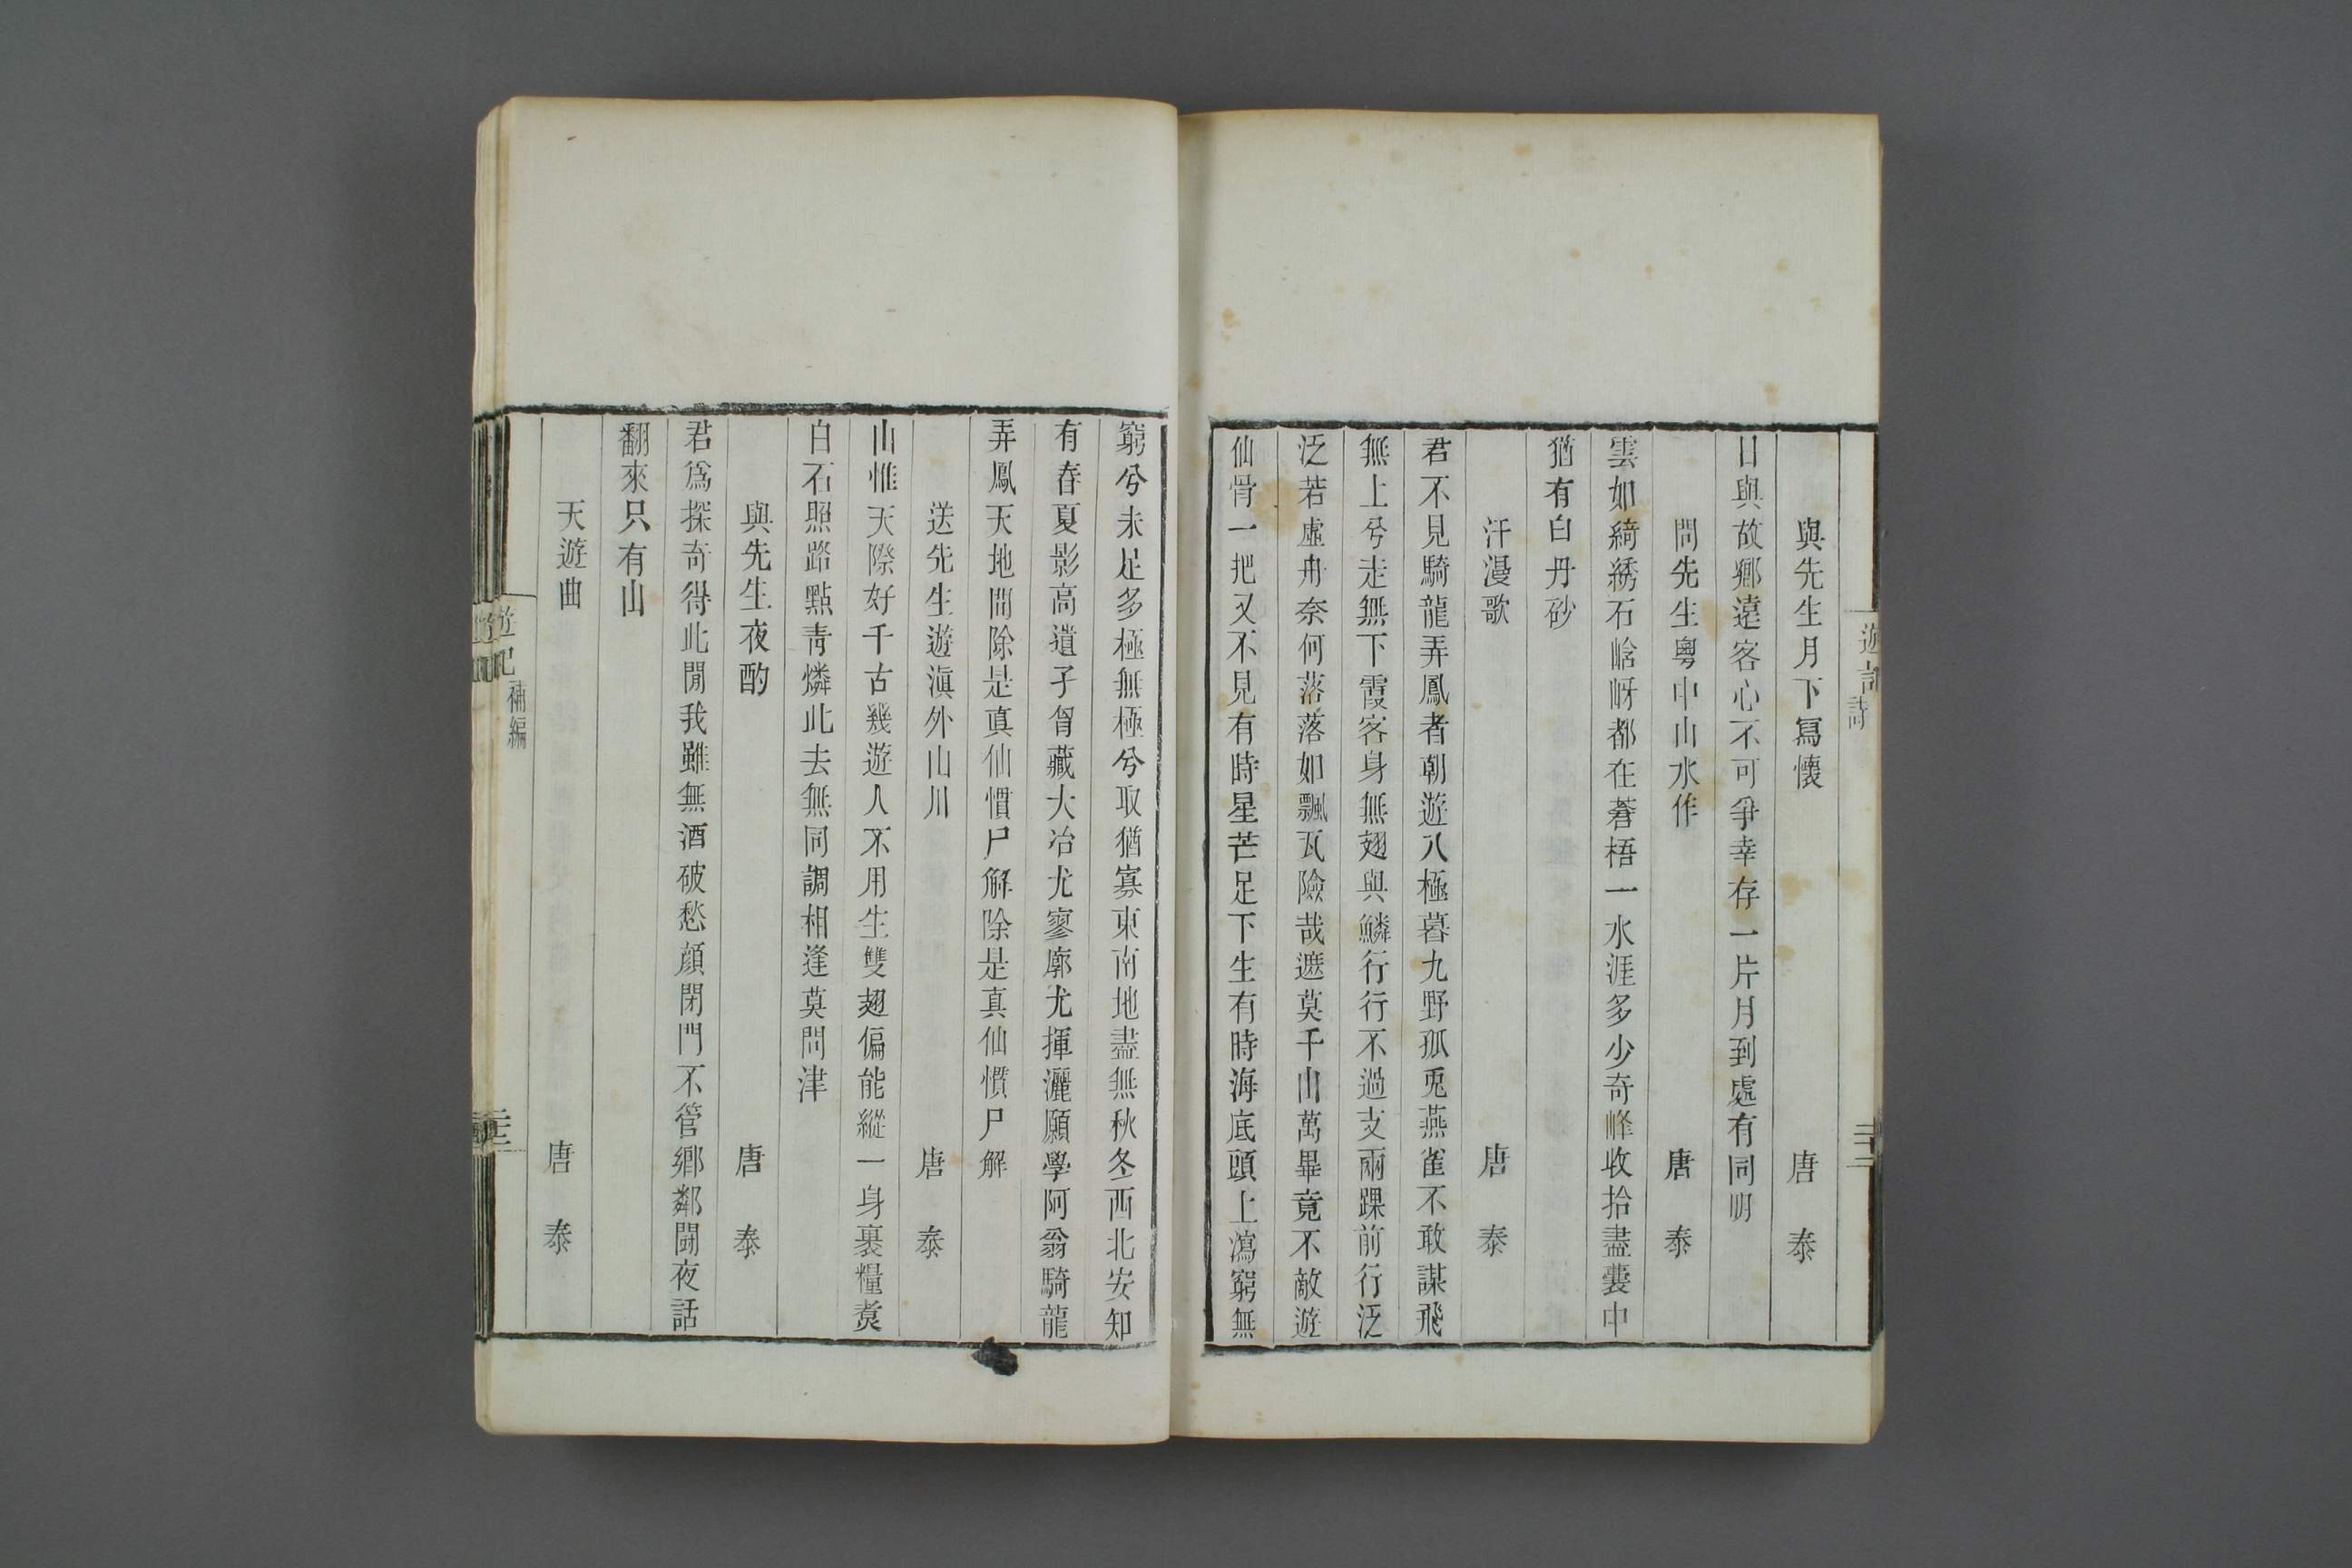 與先生月下寫懷　唐　泰
日與故鄉遠客心不可爭幸存一片月到處有同明
問先生粵中山水作　唐　泰
雲如綺綉石㟏岈都在蒼梧一水涯多少奇峰收拾盡囊中
猶有白丹砂
汗漫歌　唐　泰
君不見騎龍弄鳳者朝遊八極暮九野孤兎燕雀不敢謀飛
無上兮走無下霞客身無翅與鱗行行不過支兩踝前行泛
泛若虛舟奈何落落如飄瓦險哉遮莫千山萬畢竟不敵遊
仙骨一把又不見有時星芒足下生有時海底頭上瀉窮無
窮兮未足多極無極兮取猶寡東南地盡無秋冬西北安知
有春夏影高遺子胷藏大冶尤寥廓尤揮灑願學阿翁騎龍
弄鳳天地間除是真仙慣尸解除是真仙慣尸解
送先生遊滇外山川　唐　泰
山惟天際好千古幾遊人不用生雙翅偏能縱一身裹糧煑
白石照路點青燐此去無同調相逢莫問津
與先生夜酌　唐　泰
君爲探奇得此閒我雖無酒破愁顏閉門不管鄉鄰鬪夜話
翻來只有山
天遊曲　唐　泰
遊記
補編